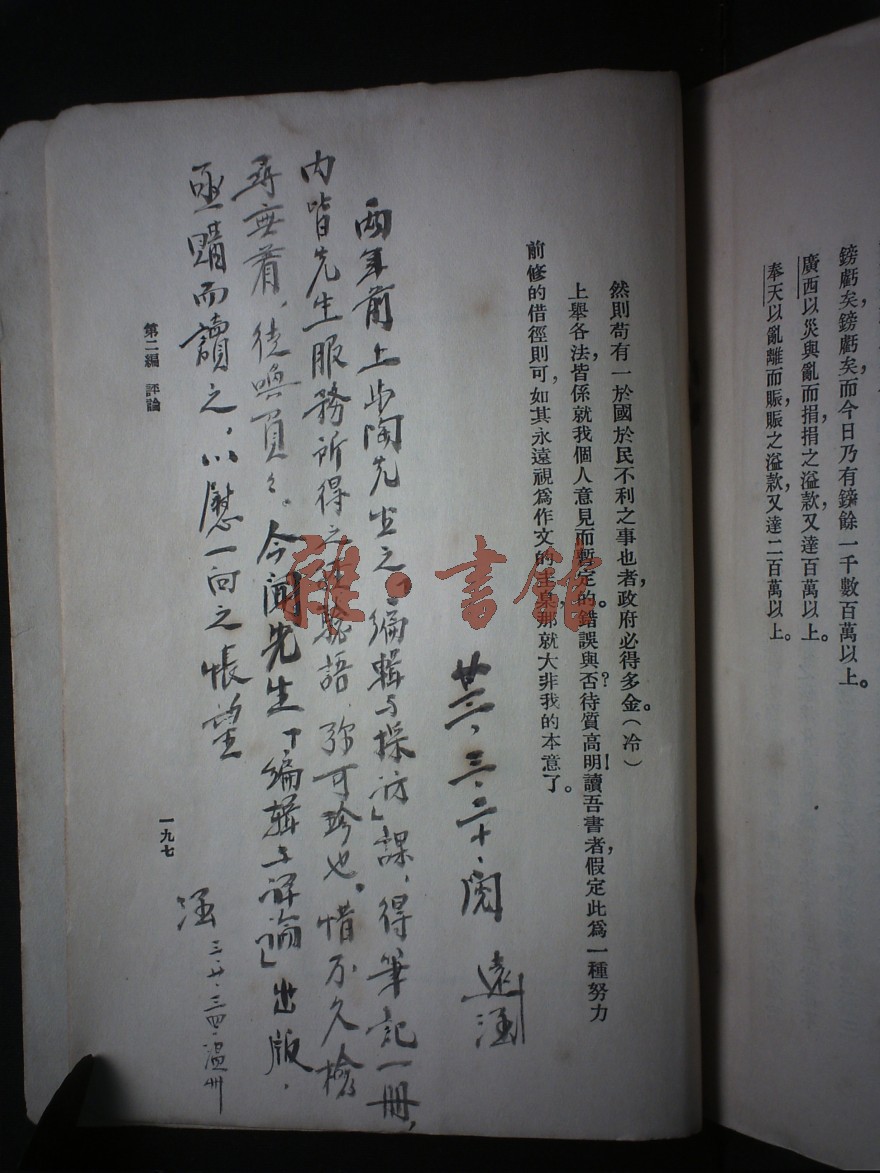 鎊虧矣，鎊虧矣而今日乃有鎊餘一千數百萬以上。
廣西以災與亂而捐，捐之溢款，又達百萬以上。
奉天以亂離而賑，賑之溢款，又達二百萬以上。
然則苟有一於國於民不利之事也者，政府必得多金。（冷）
上舉各法，皆係就我個人意見而暫定的。錯誤與否？待質高明！讀吾書者，假定此爲一種努力
前修的借徑則可，如其永遠視爲作文的圭臬，那就大非我的本意了。
廿三，三，二十，閱 遠涵
兩年前上步陶先生之「編輯与採訪」課，得筆記一册，
内皆先生服務所得之經驗語，弥可珍也。惜不久檢
尋無着，徒喚負々。今聞先生「編輯与評論」出版，
亟購而讀之，以慰一向之悵望
涵 三、廿、三四，温州
第二編 評論
一九七
雜·書館